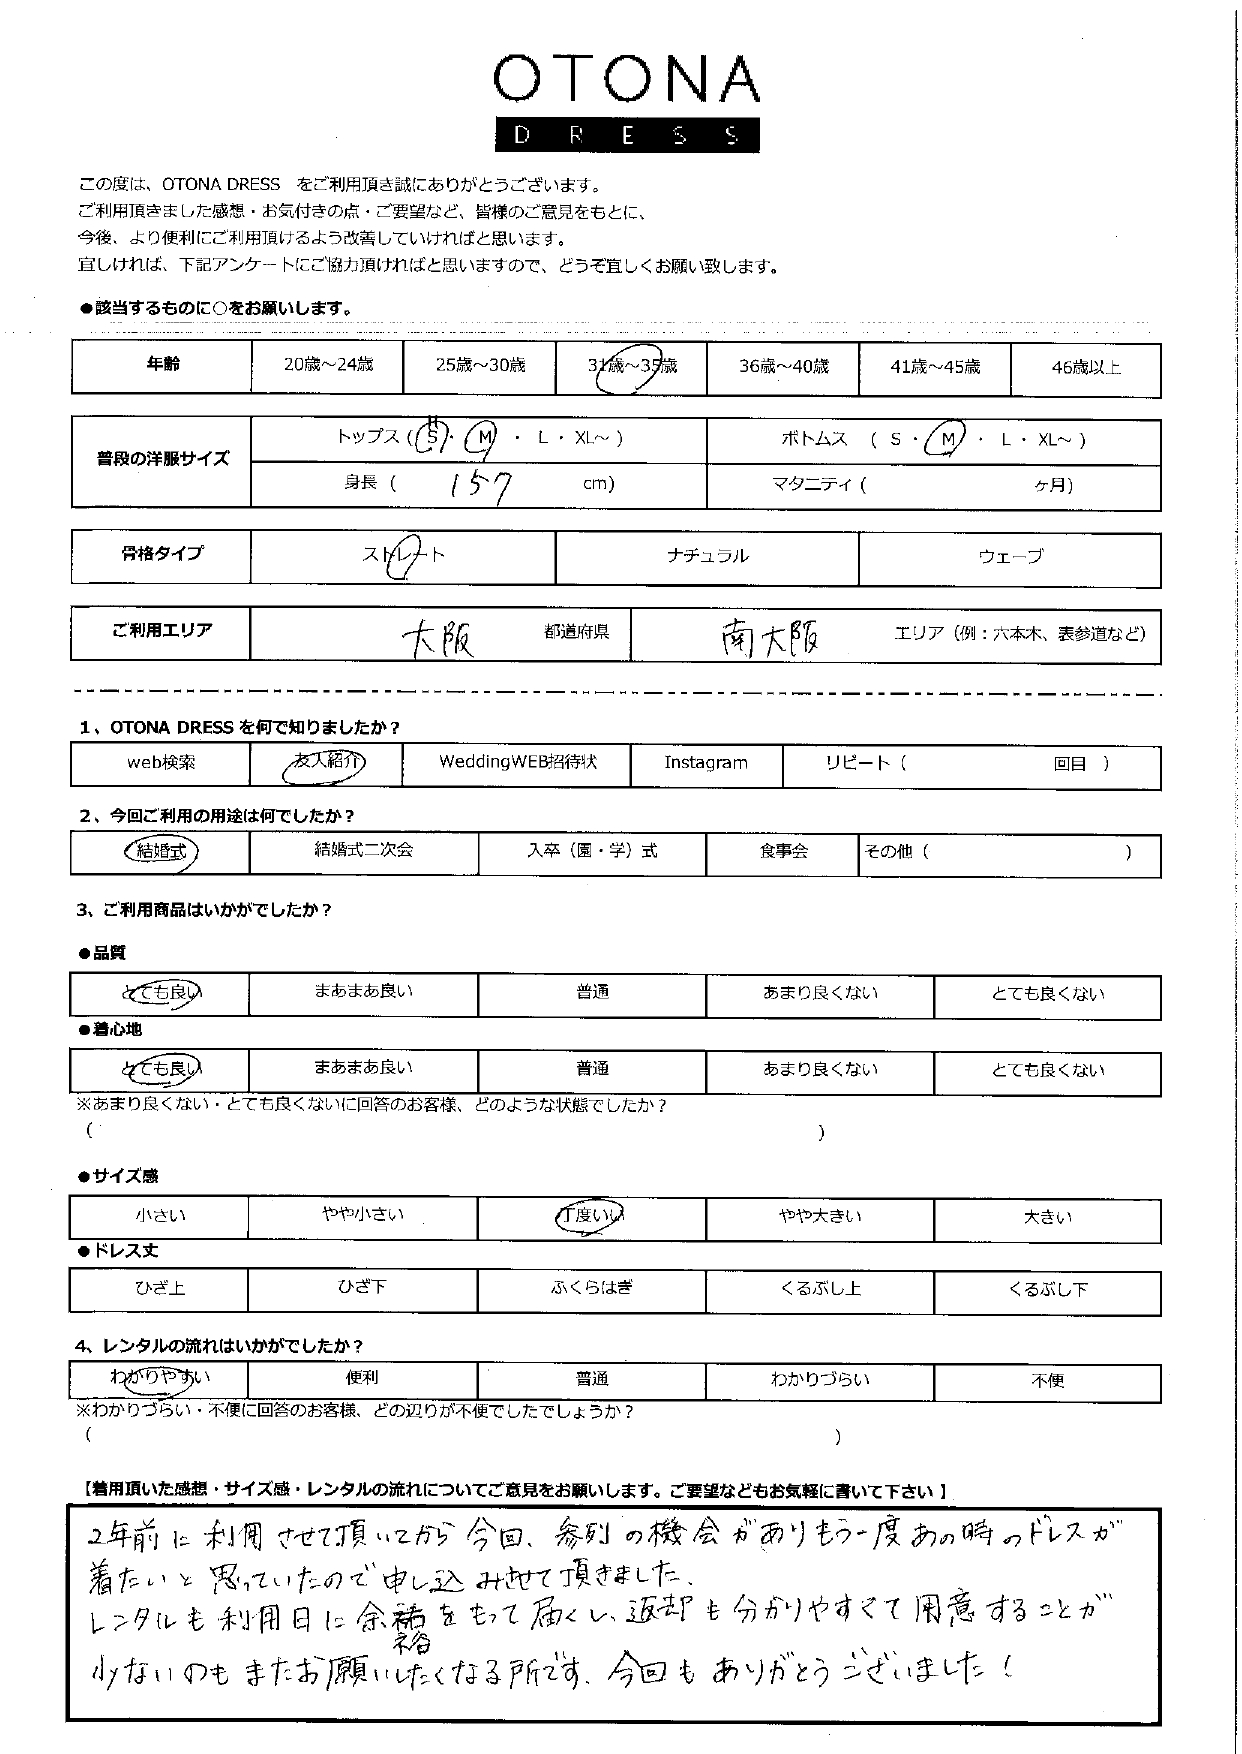 OTONA
DRESS
この度は、OTONA DRESS をご利用頂き誠にありがとうございます。
ご利用頂きました感想・お気付きの点・ご要望など、皆様のご意見をもとに、
今後、より便利にご利用頂けるよう改善していければと思います。
宜しければ、下記アンケートにご協力頂ければと思いますので、どうぞ宜しくお願い致します。
●該当するものに○をお願いします。
年齢 20歳～24歳 25歳～30歳 31歳～35歳 36歳～40歳 41歳～45歳 46歳以上
普段の洋服サイズ トップス ( S ・ M ・ L ・ XL～ ) ボトムス ( S ・ M ・ L ・ XL～ )
身長 ( 157 cm) マタニティ ( ヶ月)
骨格タイプ ストレート ナチュラル ウェーブ
ご利用エリア 大阪 都道府県 南大阪 エリア（例：六本木、表参道など）
1、OTONA DRESS を何で知りましたか？
web検索 友人紹介 WeddingWEB招待状 Instagram リピート（ 回目 ）
2、今回ご利用の用途は何でしたか？
結婚式 結婚式二次会 入卒（園・学）式 食事会 その他（ ）
3、ご利用商品はいかがでしたか？
●品質
とても良い まあまあ良い 普通 あまり良くない とても良くない
●着心地
とても良い まあまあ良い 普通 あまり良くない とても良くない
※あまり良くない・とても良くないに回答のお客様、どのような状態でしたか？
( )
●サイズ感
小さい やや小さい 丁度いい やや大きい 大きい
●ドレス丈
ひざ上 ひざ下 ふくらはぎ くるぶし上 くるぶし下
4、レンタルの流れはいかがでしたか？
わかりやすい 便利 普通 わかりづらい 不便
※わかりづらい・不便に回答のお客様、どの辺りが不便でしたでしょうか？
( )
【着用頂いた感想・サイズ感・レンタルの流れについてご意見をお願いします。ご要望などもお気軽に書いて下さい 】
2年前に利用させて頂いてから今回、参列の機会がありもう一度あの時のドレスが
着たいと思っていたので申し込みさせて頂きました。
レンタルも利用日に余裕をもって届くし、返却も分かりやすくて用意することが
少ないのもまたお願いしたくなる所です。今回もありがとうございました！